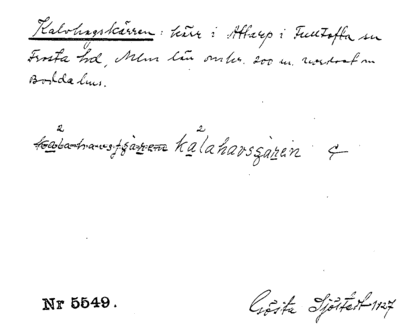 Kalvhagskärren: kärr i Attarp i Fulltofta sn
Frosta hd, Mlm län omkr. 200 m. nordost om
Boddahus.
2 2
kalahavsgären kalahavsgären ¢
Nr 5549.
Gösta Sjöstedt 1927